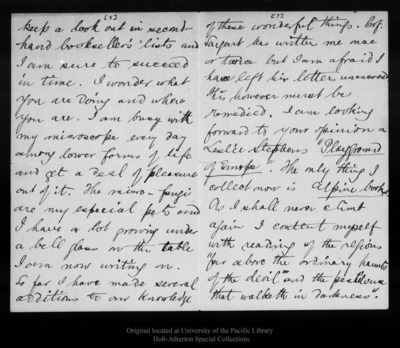 [2]
keep a look out in second
hand booksellers' lists and
I am sure to succeed
in time. I wonder what
you are doing and where
you are. I am busy with
my microscope every day
among lower forms of life
and get a deal of pleasure
out of it. The micro-fungi
are my especial pets and
I have a lot growing under
a bell glass on the table
I am now writing on.
So far I have made several
additions to our knowledge
[3]
of these wonderful things. Prof.
Sargent has written me once
or twice but I am afraid I
have left his letter unanswered
This however must be
remedied. I am looking
forward to your opinion on
Leslie Stephens "Playground
of Europe". The only thing I
collect now is Alpine books
As I shall never climb
again I content myself
with reading of the regions
"far above the ordinary haunts
of the devil" and the pestilence
that walketh in darkness.
Original located at University of the Pacific Library
Holt-Atherton Special Collections